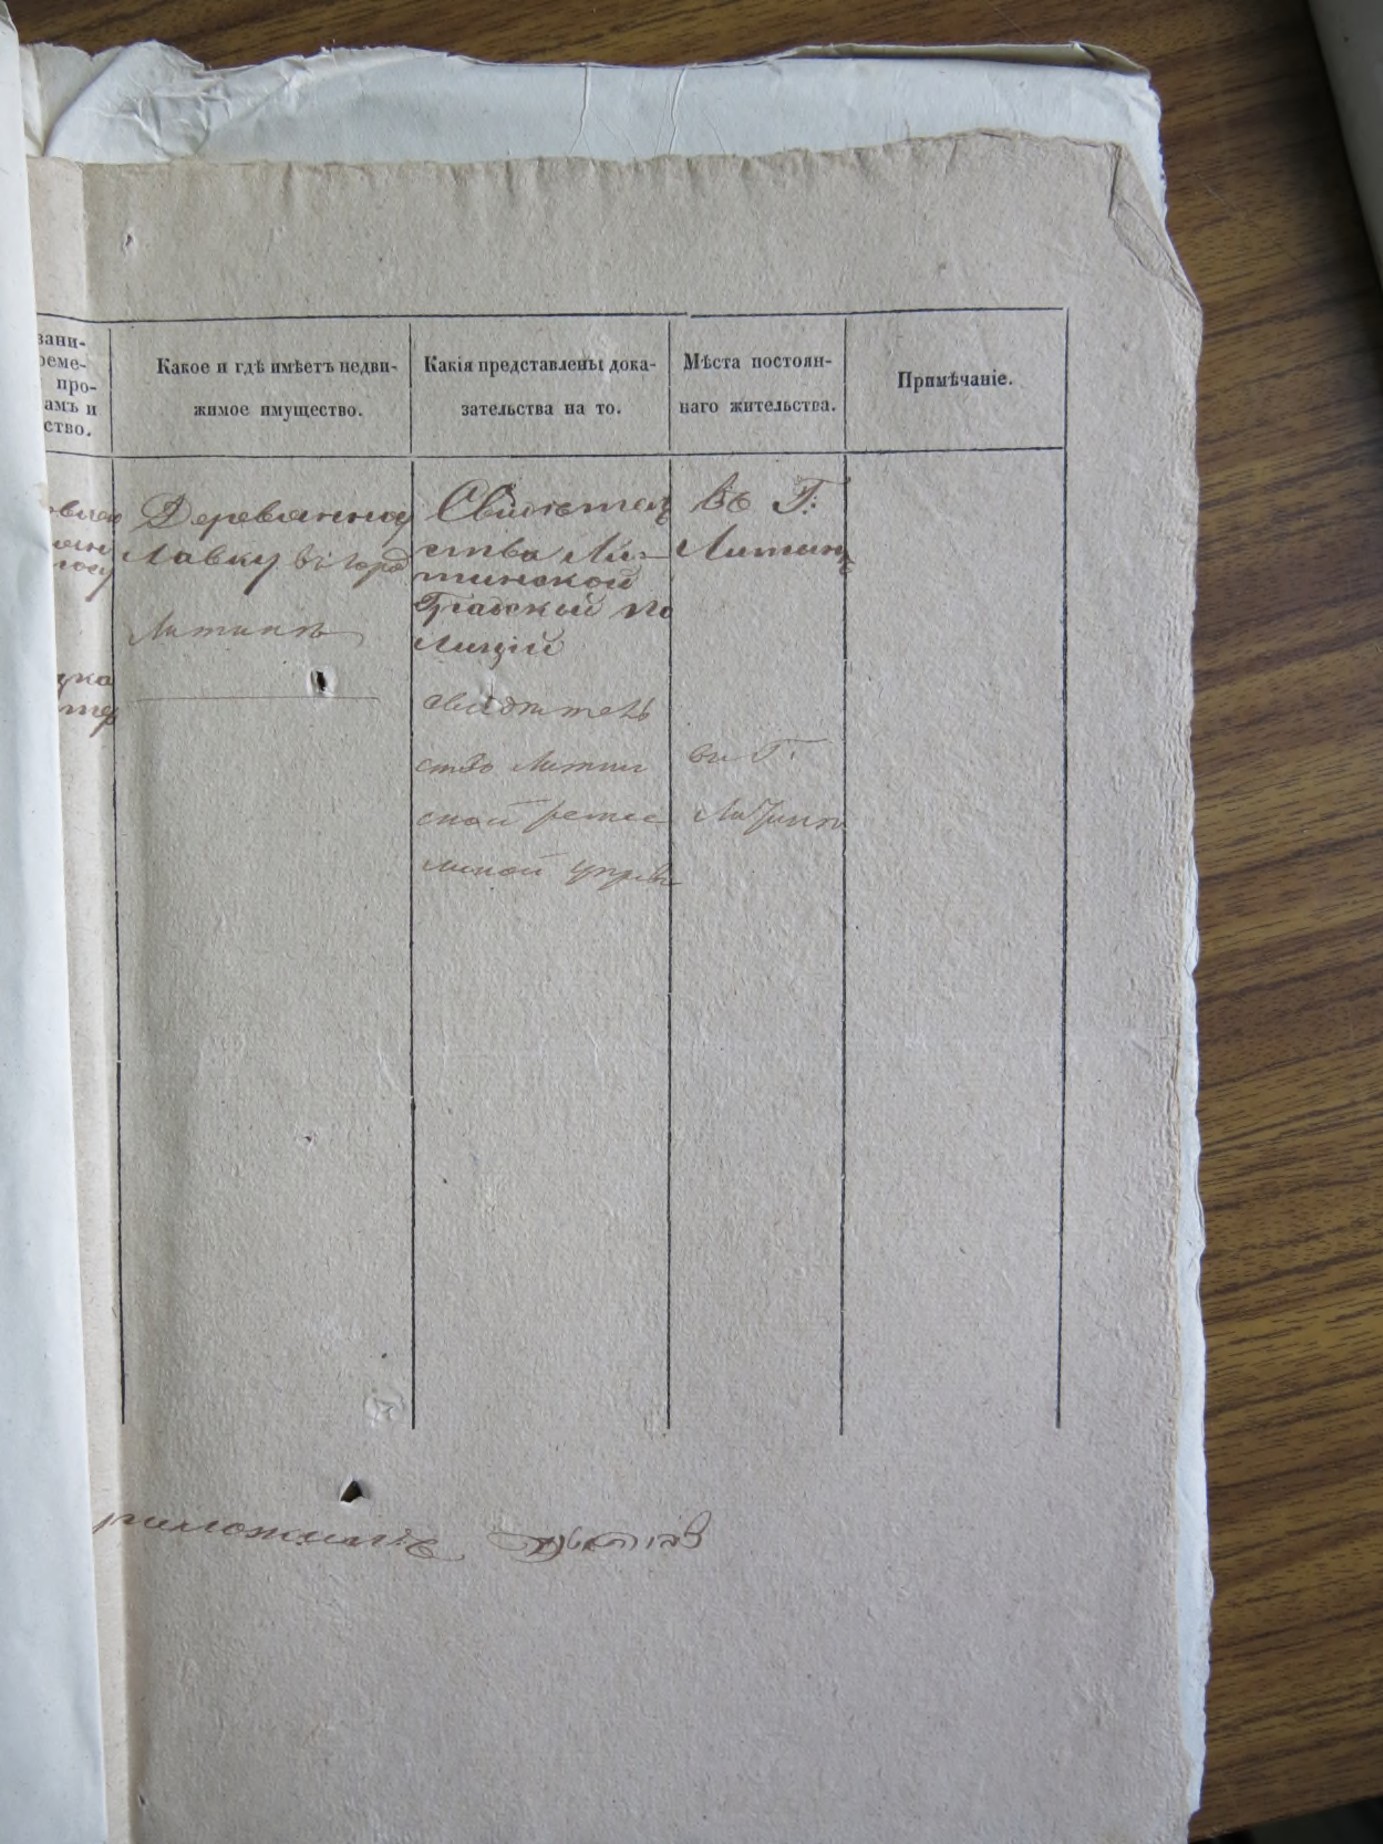 зани-
реме-
про-
амъ и
ство.
Какое и гдѣ имѣетъ недви-
жимое имущество.
Какія представлены дока-
зательства на то.
Мѣста постоян-
наго жительства.
Примѣчаніе.
Деревянную
Лавку въ город
Литинѣ
Свидѣтел
ства Ли-
тинской
Градской По
лиціи
Въ Г:
Литинѣ
свидѣтель
ство Литин
ской ремес
леной управы
въ Г.
Литинѣ